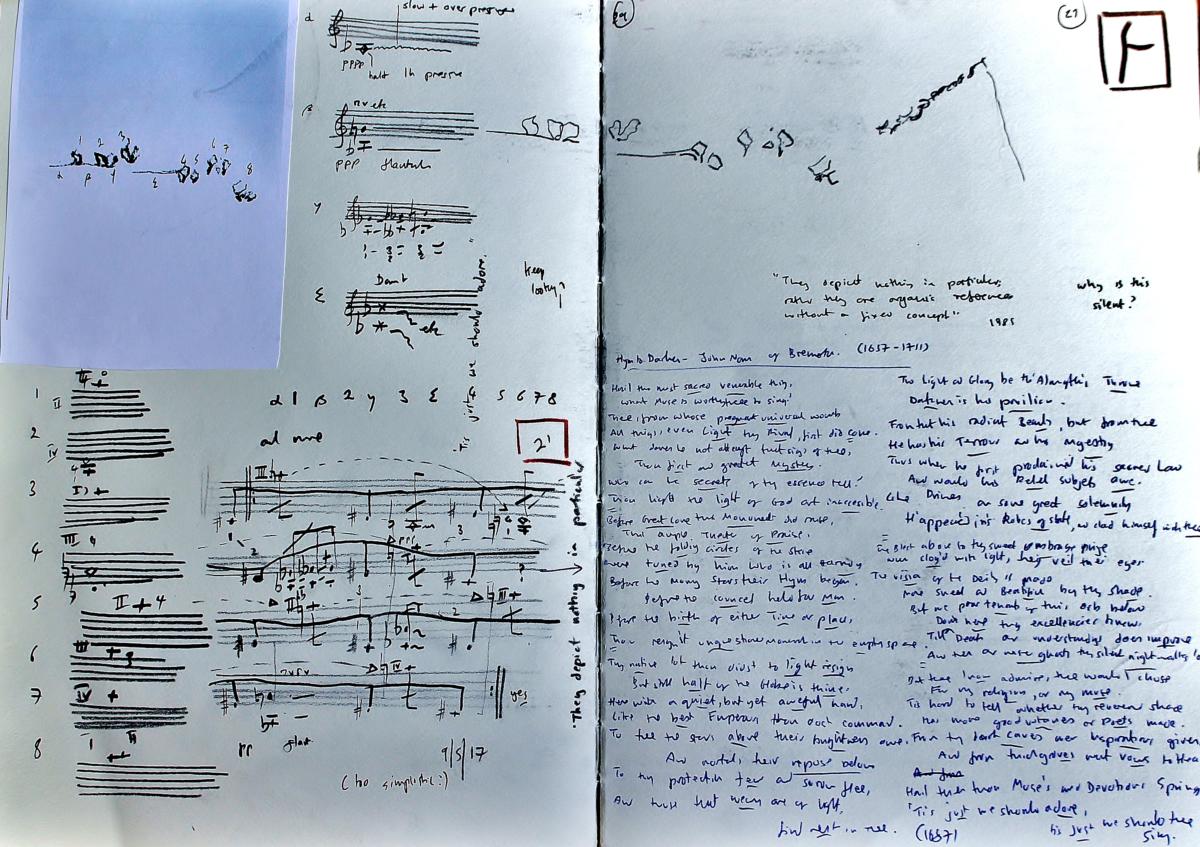 α
slow + over pressure
pppp
half lh pressure
β
nv etc
ppp flautando
γ
ε
Damp
etc
keep looking
1 2 3 4 5 6 7 8
α β γ ε
1
II
2
IV
3
4
III
5
II + 4
6
III
7
IV +
8
α 1 β 2 γ 3 ε 4 5 6 7 8
'Tis just we should adore."
2'
III
ppp
III
IV
yes
pp flaut
9/5/17
(too simplistic :)
"They depict nothing in particular
27
F
"They depict nothing in particular,
rather they are organic references
without a fixed concept"
1985
why is this
silent?
Hymn to Darkness - John Norris of Bremerton. (1657-1711)
Hail thou most sacred venerable thing,
what Muse is worthy thee to sing?
Thee, from whose pregnant universal womb
All things, even Light thy Rival, first did come.
What dares he not attempt that sings of thee,
Thou first and greatest Mystery.
Who can the secrets of thy essence tell?
Thou like the light of God art inaccessible.
Before Great Love this Monument did raise,
This ample Theatre of Praise.
Before the folding circles of the Skie
were tuned by him who is all Harmony
Before the Morning Stars their Hymn began,
Before the council held for Man.
Before the birth of either Time or place,
Thou reign'st unquestioned monarch in the empty space.
Thy native lot thou didst to light resign
But still half of the Globe is thine.
Here with a quiet, but yet aweful hand,
Like the best Emperours thou dost command.
To thee the Stars above their brightness owe,
And mortals their repose below
To thy protection fear and sorrow flee,
And those that weary are of light,
find rest in Thee.
Tho light and Glory be th' Almighty's Throne
Darkness is his pavilion.
From that his radiant Beauty, but from thee
He has his Terrour and his majesty
Thus when he first proclaimed his sacred Law
And would his Rebel subjects awe,
Like Princes on some great solemnity
H'appeared in's Robes of state, and clad himself with thee
The Blest above do thy sweet umbrage prize
when cloy'd with light, they veil their eyes
The vision of the Deity is made
more sweet and Beatific by thy shade.
But we poor tenants of this orb below
Don't here thy excellencies know
Till Death our understandings does improve
And then our wiser ghosts thy silent night-walks love
But thee I now admire, thee would I chose
For my religion, or my muse.
'Tis hard to tell whether thy reverend shade
Has more good votaries or Poets made.
From thy dark caves were Inspirations given
And from thick groves went vows to Heaven
Hail then thou Muse's and Devotions Spring
'Tis just we should adore,
'tis just we should thee
Sing.
(1687)